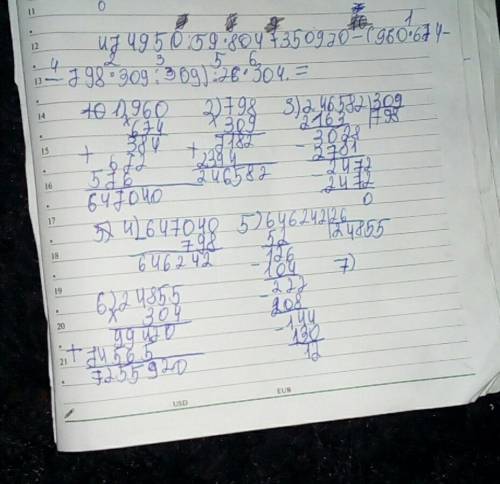 11 0
12 474950:59·804+7350920-(960·674-
13 -798·309:309):26·304=
14 1)960 2)798 3)246582|309
674 309 2163 |798
15 384 7182 3028
+ 672 + 2394 - 2781
16 576 246582 - 2472
647040 2472
0
17 4)647040 5)646242|26
798 52 |24855
18 646242 - 126
- 104 7)
19 6)24855 - 222
304 208
20 99420 - 144
+ 74565 130
21 7255920 12
USD EUR